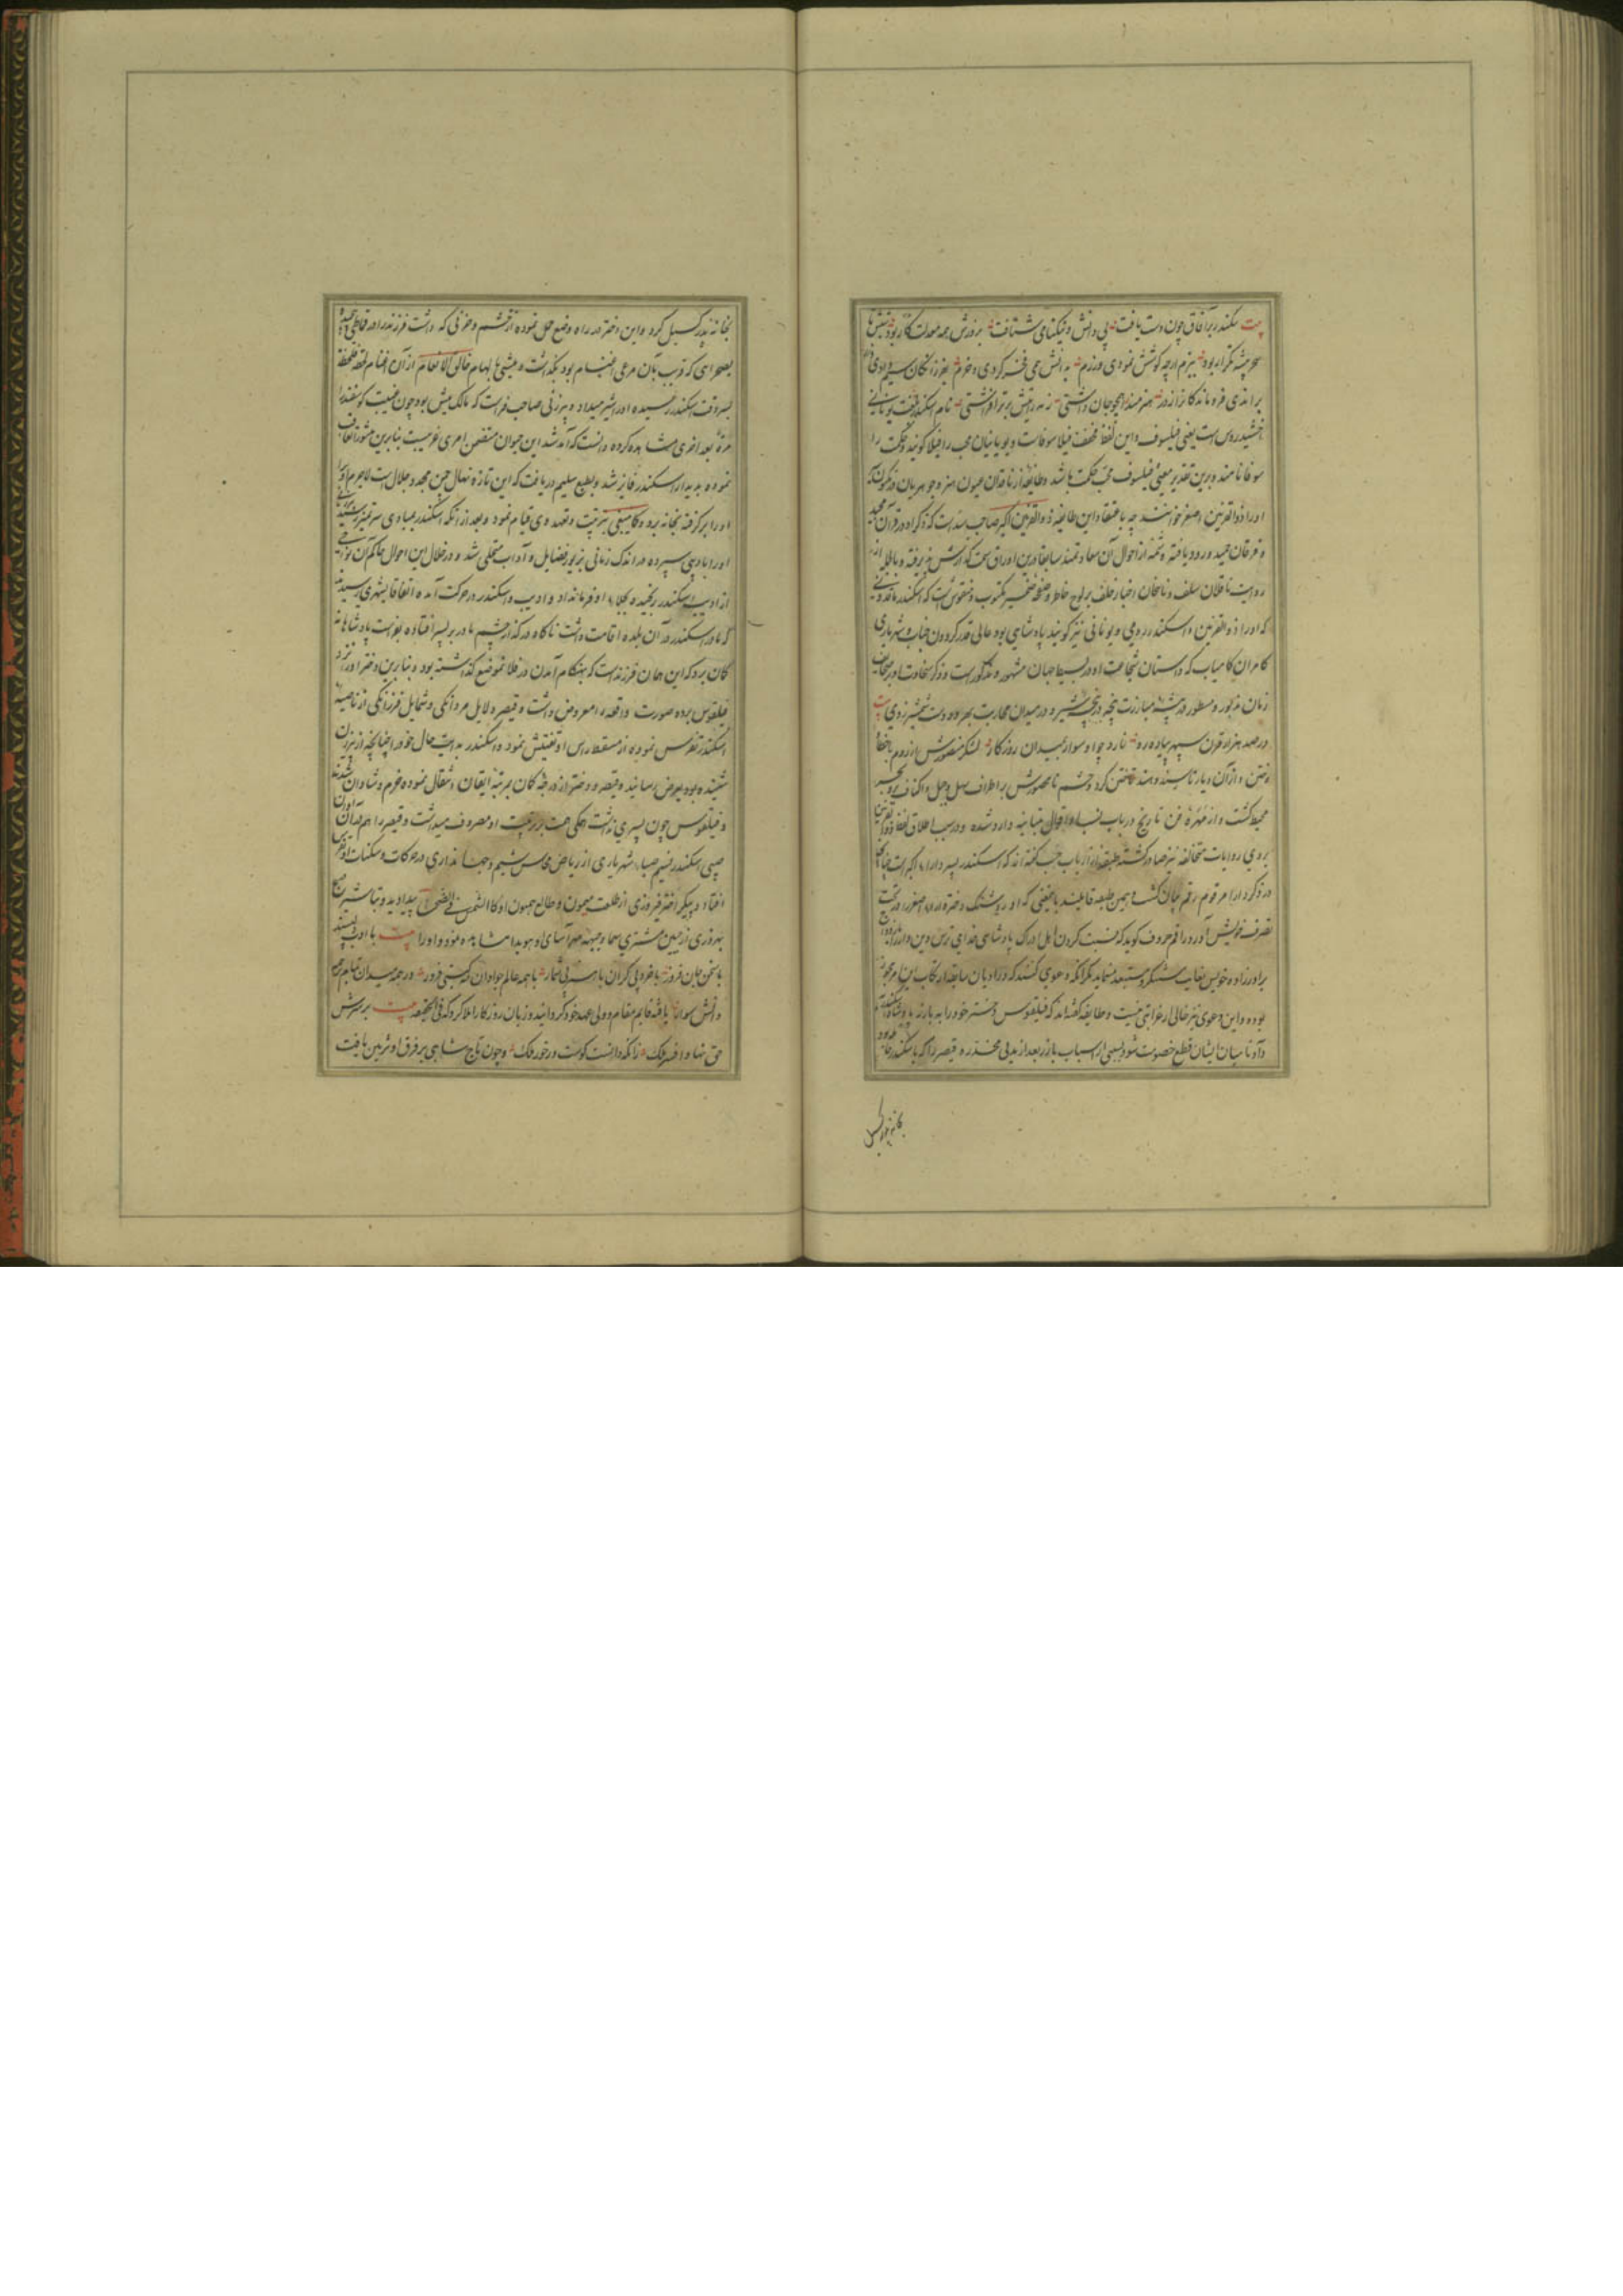 بیت سکندر بر آفاق چون دست یافت پی دانش و نیکنامی شتافت بزورش همه معدلت کار بود
سحر پیشه تکرار بود ببزم ارچه کوشش نمودی ورزم بدانش همی فخر کردی و حزم
براندی فرومانده کانرا ز در هنرمند را همچو جان داشتی ز هم رایتش برتر افراشتی نام اسکندر بلغت یونانی
اخشیدروس است یعنی فیلسوف و این لفظ مخفف فیلا سوفاست و یونانیان محب را فیلا گویند و حکمت را
سوفا نامند و برین تقدیر معنی فیلسوف محب حکمت باشد و طایفه از ناقدان عیون هنر و جوهریان
او را ذوالقرنین اصغر خوانند چه باعتقاد این طایفه ذوالقرنین اکبر صاحب سد است که ذکر او در قرآن مجید
و فرقان حمید ورود یافته و شمه از احوال آن سعادتمند سابقا درین اوراق سمت گذارش پذیرفته
روایت ناقلان سلف و ناسخان اخبار خلف بر لوح خاطر و صفحه ضمیر مکتوب و منقوش است که اسکندر ماقدونی
که او را ذوالقرنین و اسکندر رومی و یونانی نیز گویند پادشاهی بود عالی قدر گردون جناب و شهریاری
کامران کامیاب که داستان شجاعت او در بسیط جهان مشهور و مذکور است و ذکر سخاوت او بر صحایف
زمان مزبور و مسطور در بیشه مبارزت پنجه در پنجه شیر و در میدان محاربت بهر دو دست شمشیر زدی بیت
در صد هزار قرن سپهر پیاده رو نارد چو او سوار بمیدان روزگار لشکر منصورش از روم با خطا
و ختن و از آن دیار تا سند و هند تاختن کرد و حشم نا محصورش بر اطراف سهل و جبل و اکناف بر و بحر
محیط گشت و از مهره فن تاریخ در باب نسب او اقوال متباینه وارد شده و در سبب اطلاق لفظ ذوالقرنین
بروی روایات متخالفه نیز صادر گشته طبقه از ارباب حسب گفته اند که اسکندر پسر داراء اکبر است چنانچه
در ذکر دارا مرقوم رقم بیان گشت و همین طبقه قایلند باینمعنی که او روشنک دختر داراء اصغر را در تحت
تصرف خویش آورد و راقم حروف گوید که نسبت کردن اهل ادراک پادشاهی خدای ترس دین دار را
برادرزاده خویش بغایت مستنکر و مستبعد مینماید مگر آنکه دعوی کنند که در ادیان سابقه ارتکاب این امر مجوز
بوده و این دعوی نیز خالی از غرابتی نیست و طایفه گفته اند که فیلقوس دختر خود را به دارا پادشاه
داد تا میان ایشان قطع خصومت شود بسببی از اسباب دارا بعد از مدتی مخدره قیصر را که باسکندر حامله بود
بخانه پدر گسیل
بخانه پدر گسیل کرد و این دختر در راه وضع حمل نموده از خشم و حزنی که داشت فرزند را در قماطی
بصحرای که قریب بآن مرعی اغنام بود بگذاشت و میشی بالهام خالق الانعام از آن اغنام لحظه فلحظه
بسر وقت اسکندر رسیده او را شیر میداد و پیرزنی صاحب فراست که مالک میش بود چون غیبت گوسفند را
مرة بعد اخری مشاهده کرده دانست که آمد شد این حیوان متضمن امری غریبست بنابرین
نموده به دیدار اسکندر فایز شد و بطبع سلیم دریافت که این تازه نهال چمن مجد و جلال است لاجرم
او را برگرفته بخانه برد و کما ینبغی بتربیت و تعهد وی قیام نمود و بعد از آنکه اسکندر بمبادی سن تمیز رسید
او را بادیبی سپرده در اندک زمانی بزیور فضایل و آداب متحلی شد و در خلال این احوال حاکم آن نواحی
از ادیب اسکندر رنجیده بجلاء او فرمان داد و ادیب و اسکندر در حرکت آمده اتفاقا بشهری رسیدند
که مادر اسکندر در آن بلده اقامت داشت ناگاه در گذر چشم مادر بر پسر افتاده بفراست پادشاهانه
گمان برد که این همان فرزند است که بهنگام آمدن در فلان موضع گذاشته بود و بنابرین دختر او را نزد
فیلقوس برده صورت واقعه را معروض داشت و قیصر دلایل مردانگی و شمایل فرزانگی از ناصیه
اسکندر تفرس نموده از مسقط راس او تفتیش نمود و اسکندر بدایت حال خود را چنانچه از پیرزن
شنیده بود بعرض رسانید و قیصر و دختر از درجه گمان بمرتبه ایقان انتقال نموده خرم و شادان شدند
و فیلقوس چون پسری نداشت همگی همت بر تربیت او مصروف میداشت و قیصر را هم در آن اوان
صبی اسکندر نسیم صباء شهریاری از ریاض مجالس شمیم و جهانداری در حرکات و سکنات او نظر
افتاد و پیکر اختر فیروزی از طلعت میمون و طالع همیون او کالشمس فی الضحی پیدا دید و تباشیر صبح
بهروزی از جبین مشتری سیما و جبهه مهرآسای او هویدا مشاهده نمود و او را بیت با ادب پسند
با سخن جان فروز با خرد بی کران با هنر بی شمار با همه عالم جوادان که گیتی فروز در همه میدان تمام
دانش سوار یافته قایم مقام و ولی عهد خود گردانید و زبان روزگار املا کرد که فی الحقیقه بیت بر سرش
حق نهاد افسر ملک زانکه دانست کوست در خور ملک و چون تاج شاهی بر فرق او تزیین یافت